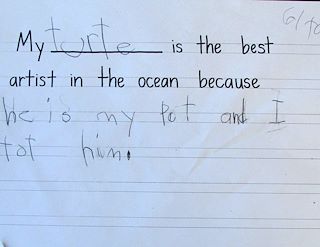 My turte is the best
artist in the ocean because
he is my Pet and I
tot him.